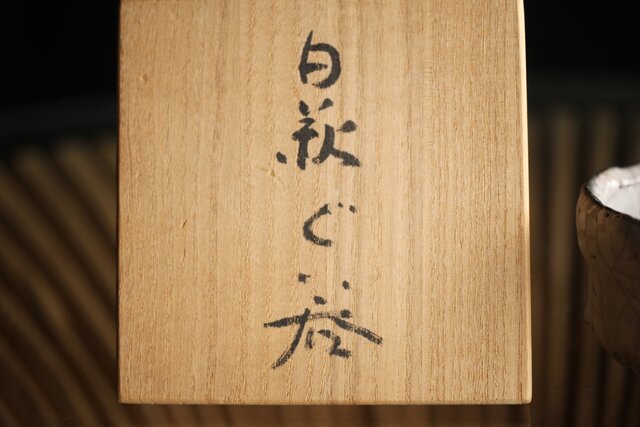 白萩ぐい呑